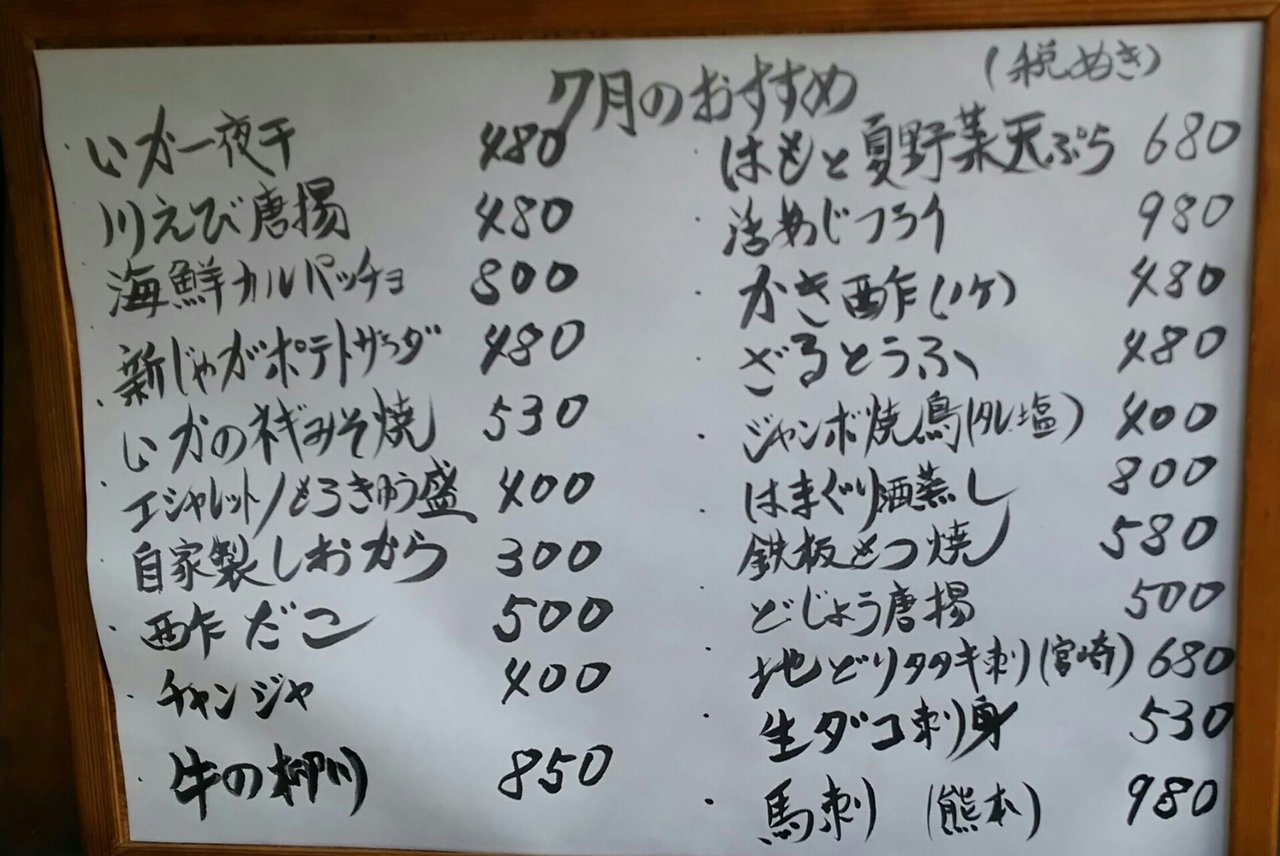 7月のおすすめ (税ぬき)
・いか一夜干 480
川えび唐揚 480
海鮮カルパッチョ 800
新じゃがポテトサラダ 480
・いかのネギみそ焼 530
・エシャレット/もろきゅう盛 400
自家製しおから 300
・酢だこ 500
・チャンジャ 400
・牛の柳川 850
・はもと夏野菜天ぷら 680
・活あじフライ 980
・かき酢(1ケ) 480
・ざるとうふ 480
・ジャンボ焼鳥(タレ.塩) 400
はまぐり酒蒸し 800
・鉄板もつ焼 580
・どじょう唐揚 500
・地どりタタキ刺(宮崎) 680
・生ダコ刺身 530
・馬刺 (熊本) 980